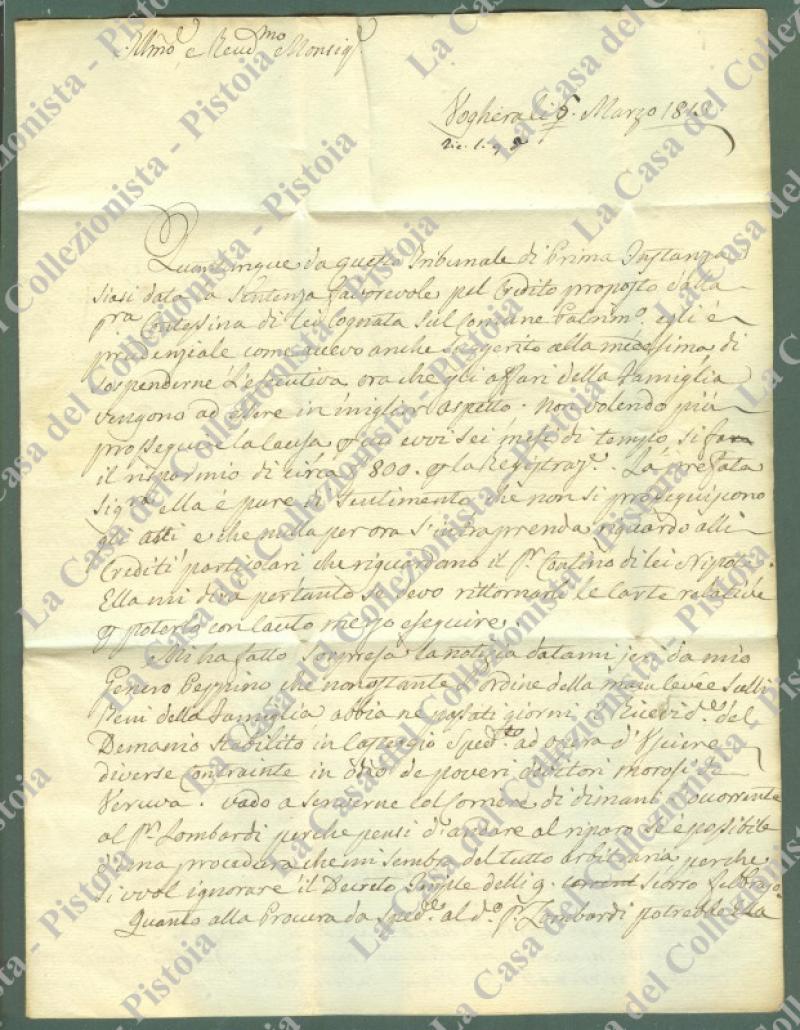 Illmo e Revdmo Monsigr
Voghera li 6. Marzo 1813
Ric. li 9 do
Quantunque da questo Tribunale di Prima Instanza
siasi data la Sentenza favorevole pel Credito proposto dalla
Contessina di lei Cognata sul Comune Patrimo, egli è
prudenziale come avevo anche suggerito alla medesima di
sospenderne l'esecutiva ora che gli affari della Famiglia
vengono ad essere in miglior aspetto. Non volendo più
prosseguire la causa ovvi sei mesi di tempo si fa
il risparmio di circa 800. la Registraze. La
Sigra ella è pure di sentimento che non si proseguiscono
gli atti e che nulla per ora s'intraprenda riguardo alli
Crediti particolari che riguardano il Sr. Contino di lei Nipote.
Ella mi dirà pertanto se devo rittornarle le Carte relative
poterlo con cauto mezzo eseguire.
Mi ha fatto sorpresa la notizia datami jeri da mio
Genero Peppino che nonostante l'ordine della main levée sulli
Beni della Famiglia abbia ne passati giorni il Ricevide. del
Demanio stabilito in Casteggio spedto ad opera d'Usciere
diverse Contrainte in odio de poveri debitori morosi di
Veruva. vado a scriverne col Corriere di dimani
al Sr. Lombardi perche pensi di andare al riparo se è possibile
d'una procedura che mi sembra del tutto arbitraria perche
si vuol ignorare il Decreto Imple delli 9. scorso Febbrajo
Quanto alla Procura da spede. al do Sr. Lombardi potrebbe Ella
La Casa del Collezionista - Pistoia